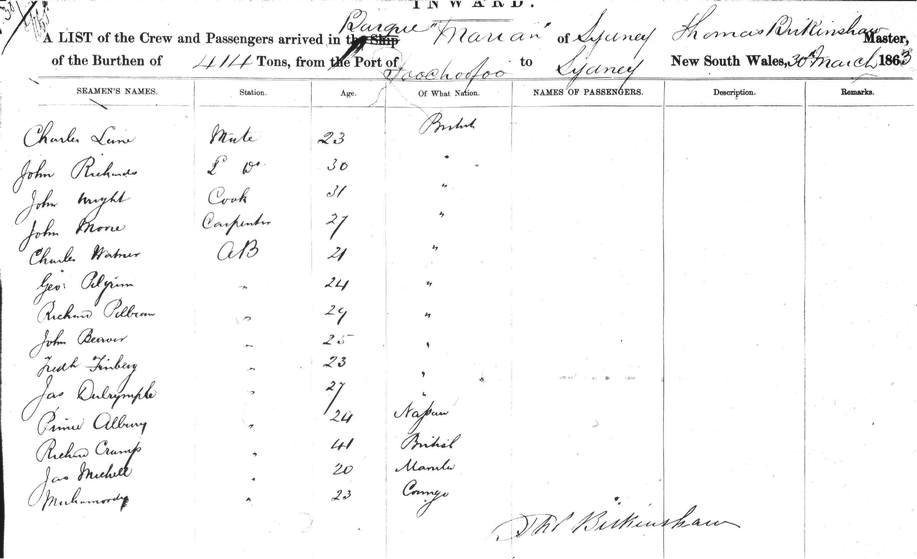 INWARD.
A LIST of the Crew and Passengers arrived in the Ship Barque "Marian" of Sydney Thomas Birkinshaw Master,
of the Burthen of 414 Tons, from the Port of Foochoofoo to Sydney New South Wales, 30th March 1863
SEAMEN'S NAMES. Station. Age. Of What Nation. NAMES OF PASSENGERS. Description. Remarks.
Charles Mate 23 British
John Richards 2 Do 30 "
John Wright Cook 31 "
John Moore Carpenter 27 "
Charles Warner AB 21 "
Geo: Pilgrim " 24 "
Richard Pilbeam " 29 "
John " 25 "
Fredk Finberg " 23 "
Jas Dalrymple " 27 "
Prince Albury " 24 Nassau
Richard Cramp " 41 British
Jas Michell " 20 Manila
" 23 Congo
Thos Birkinshaw